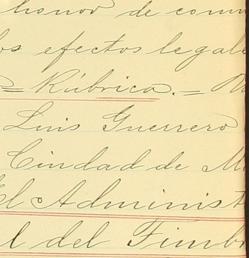 honor de com
os efectos legal
= Rúbrica. =
Luis Guerrero
Ciudad de M
El Administ
l del Timb